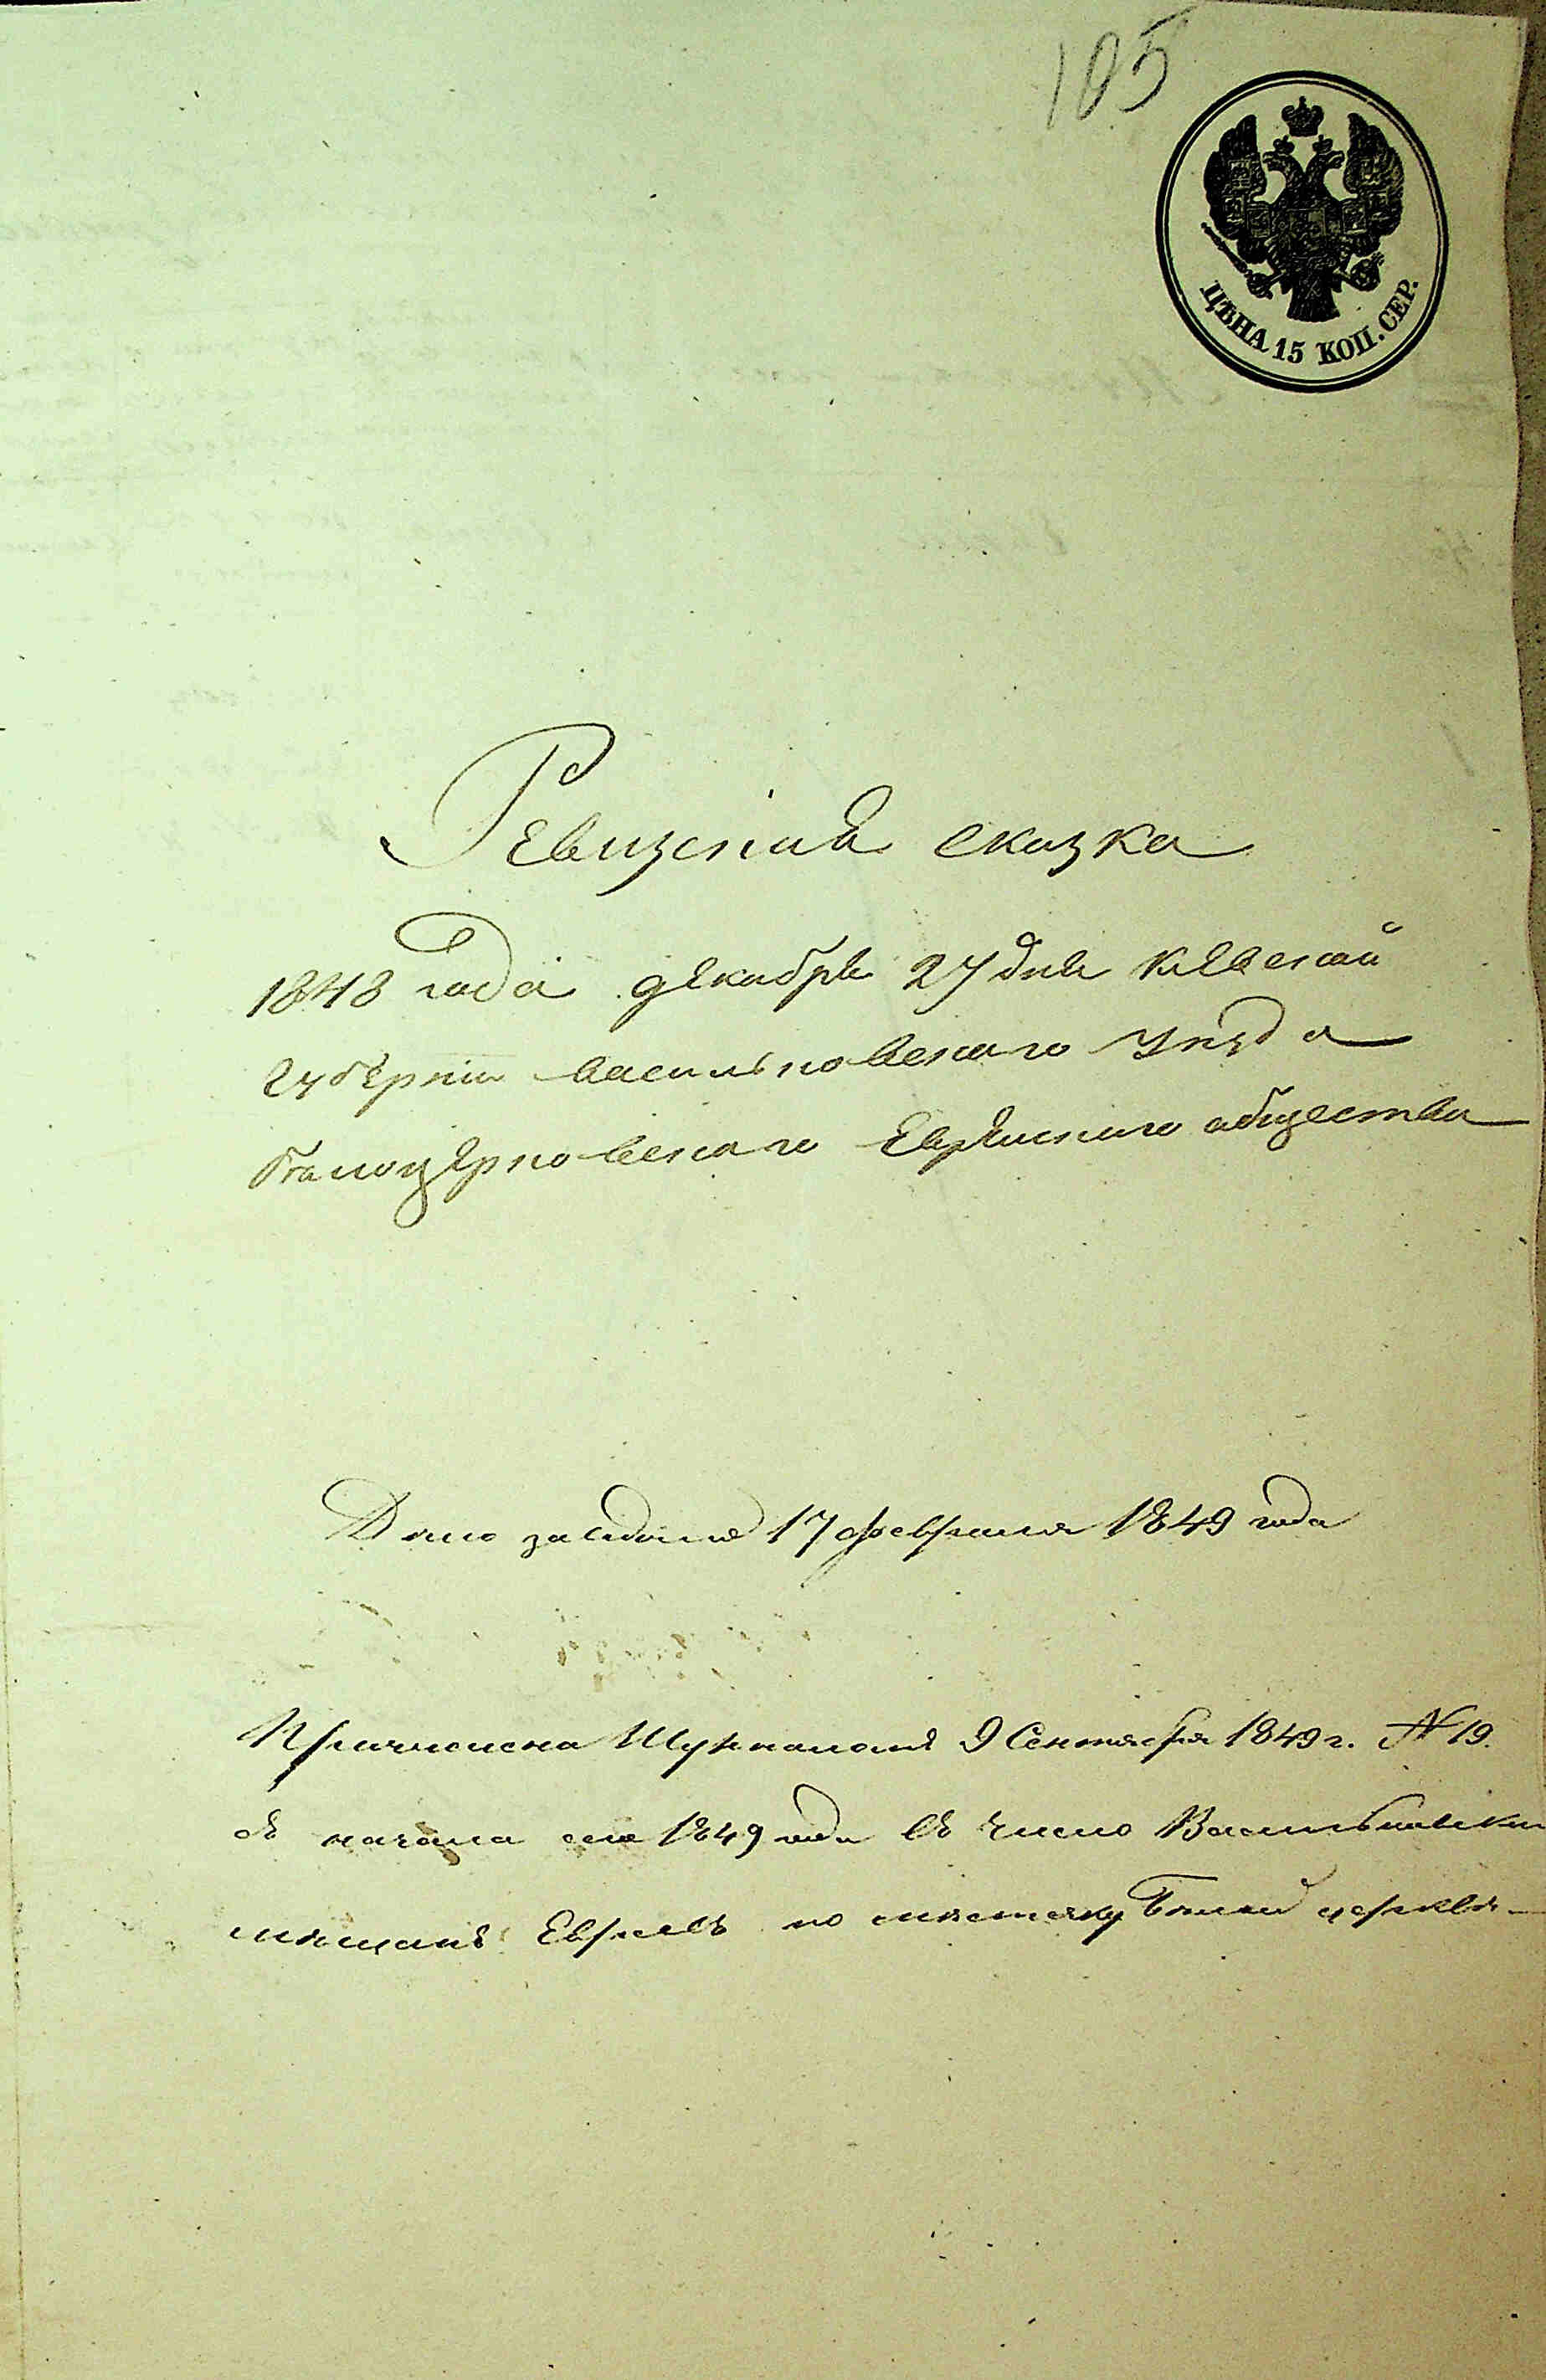 105
ЦѢНА 15 КОП. СЕР.
Ревизская сказка
1848 года декабря 27 дня Киевской
губерніи васильковскаго уѣзда
бѣлоцерковскаго Еврейскаго общества
17 февраля 1849 года
Причислена 9 Сентября 1849 г. № 19.
съ начала сего 1849 года въ число Васильковски
мѣщанъ Евреевъ по мѣстечку Бѣлой церкви